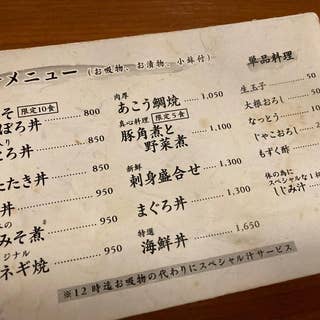 メニュー(お吸物、お漬物、小鉢付)
そ 限定10食 800
ぼろ丼
入り
とろ丼 850
たたき丼 850
丼 950
みそ煮 950
ジナル
ネギ焼 950
肉厚
あこう鯛焼 1,050
真心料理 限定5食
豚角煮と
野菜煮 1,100
新鮮
刺身盛合せ 1,300
まぐろ丼 1,300
特選
海鮮丼 1,650
単品料理
生玉子 50
大根おろし 50
なっとう 100
じゃこおろし
もずく酢
体の為に
スペシャルな1杯
しじみ汁
※12時迄お吸物の代わりにスペシャル汁サービス